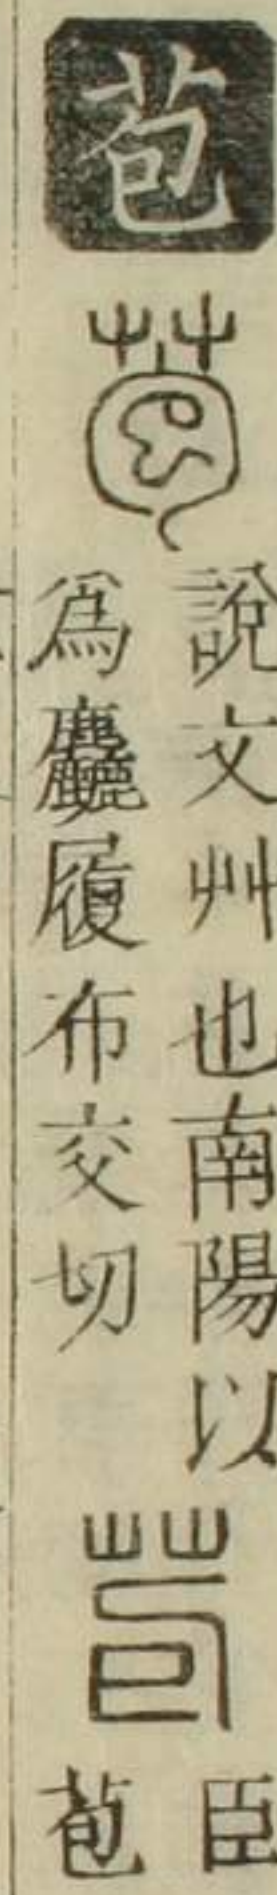 苞
說文艸也南陽以
爲麤履布交切
臣
苞